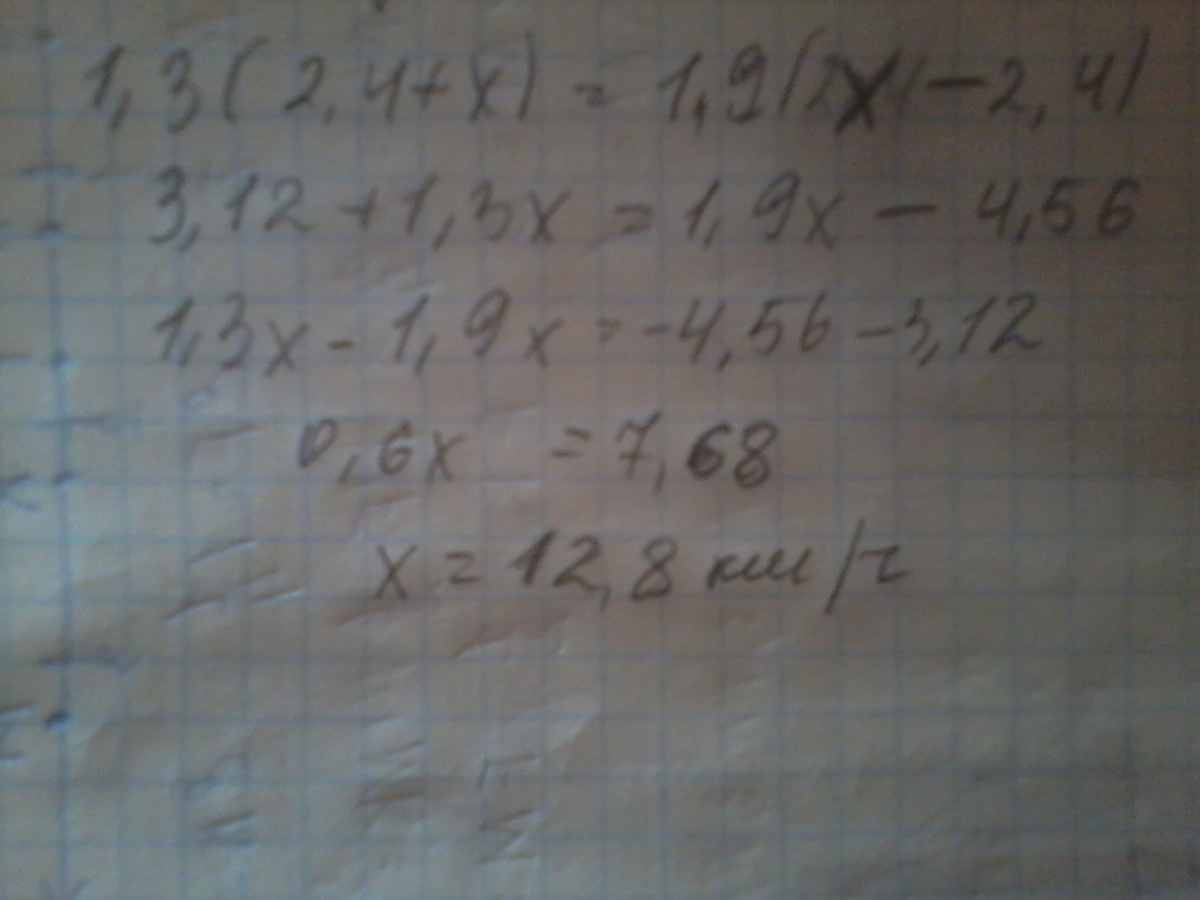 1,3(2,4+x) = 1,9(x-2,4)
3,12+1,3x = 1,9x - 4,56
1,3x - 1,9x = -4,56 - 3,12
0,6x = 7,68
x = 12,8 км/ч